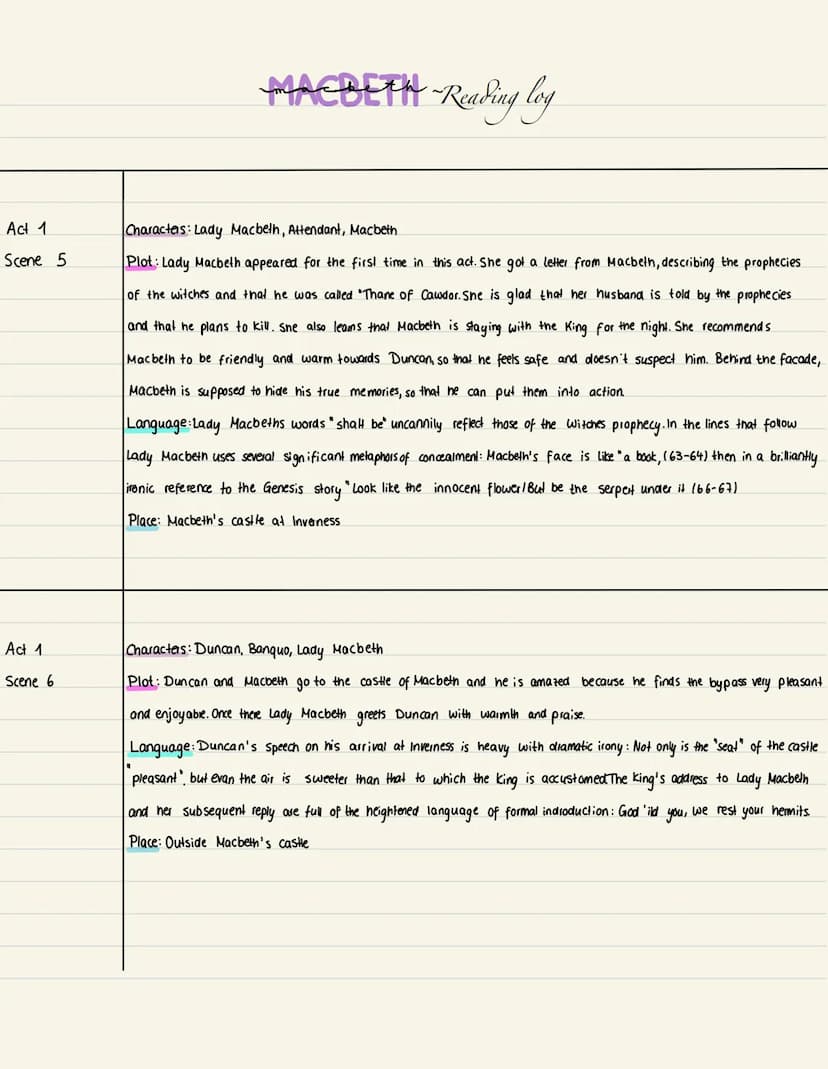 MACBETH macbeth ~Reading log
Act 1
Scene 5
Characters: Lady Macbeth, Attendant, Macbeth
Plot: Lady Macbeth appeared for the first time in this act. She got a letter from Macbeth, describing the prophecies
of the witches and that he was called "Thane of Cawdor. She is glad that her husband is told by the prophecies
and that he plans to kill. She also learns that Macbeth is staying with the King for the night. She recommends
Macbeth to be friendly and warm towards Duncan, so that he feels safe and doesn't suspect him. Behind the facade,
Macbeth is supposed to hide his true memories, so that he can put them into action
Language: Lady Macbeths words "shall be" uncannily reflect those of the Witches prophecy. In the lines that follow
Lady Macbeth uses several significant metaphors of concealment: Macbeth's face is like "a book, (63-64) then in a brilliantly
ironic reference to the Genesis story "Look like the innocent flower/But be the serpent under it (66-67)
Place: Macbeth's castle at Inverness
Act 1
Scene 6
Characters: Duncan, Banquo, Lady Macbeth
Plot: Duncan and Macbeth go to the castle of Macbeth and he is amazed because he finds the bypass very pleasant
and enjoyable. Once there Lady Macbeth greets Duncan with warmth and praise.
Language: Duncan's speech on his arrival at Inverness is heavy with dramatic irony: Not only is the "seat" of the castle
"pleasant", but evan the air is sweeter than that to which the King is accustomed. The King's address to Lady Macbeth
and her subsequent reply are full of the heightened language of formal indroduction: God 'ild you, we rest your hermits.
Place: Outside Macbeth's castle